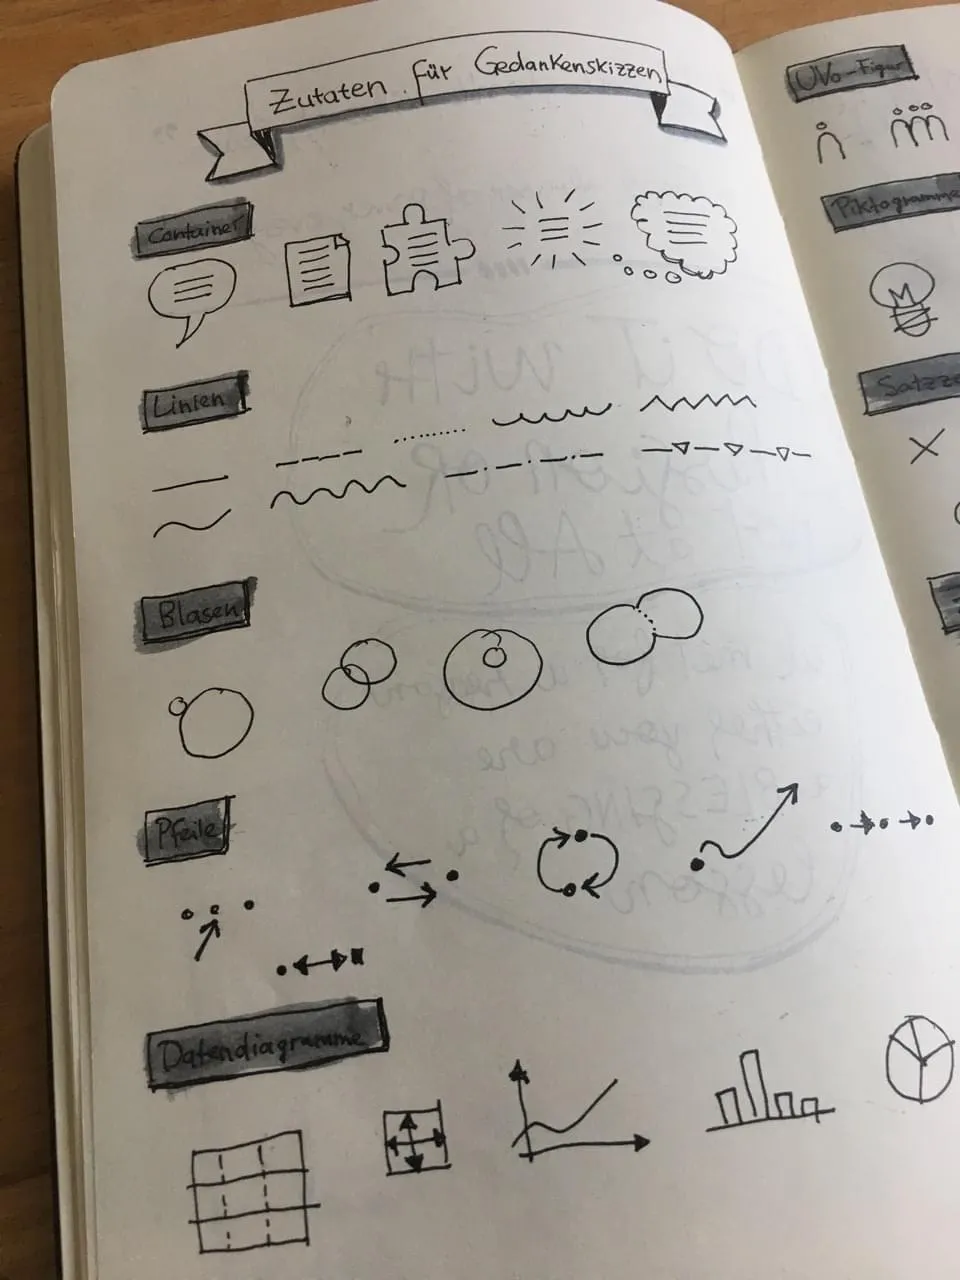 Zutaten für Gedankenskizzen
Container
Linien
Blasen
Pfeile
Datendiagramme
UVo-Figur
Piktogramme
Satzze